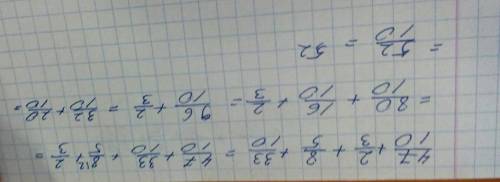 47/10 + 2/3 + 8/5 + 33/10 = 47/10 + 33/10 + 8/5 + 2/3 =
= 80/10 + 16/10 + 2/3 = 96/10 + 2/3 = 32/10 + 20/10 =
= 52/10 = 52